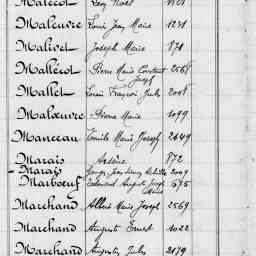 Malécot Léon Noël
Maleuvre Louis Jean Marie 1231
Malivet Joseph Marie 871
Mallécot Pierre Marie Constant 2568
Joseph
Mallet Louis François Jules 2008
Maloeuvre Pierre Marie 1099
Manceau Emile Marie Joseph 2649
Marais Arsène 872
Marais 2009
Marboeuf Edmond August Joseph 575
Marie
Marchand Albert Marie Joseph 2569
Marchand Auguste Ernest 1022
Marchand Augustin Jules 2179